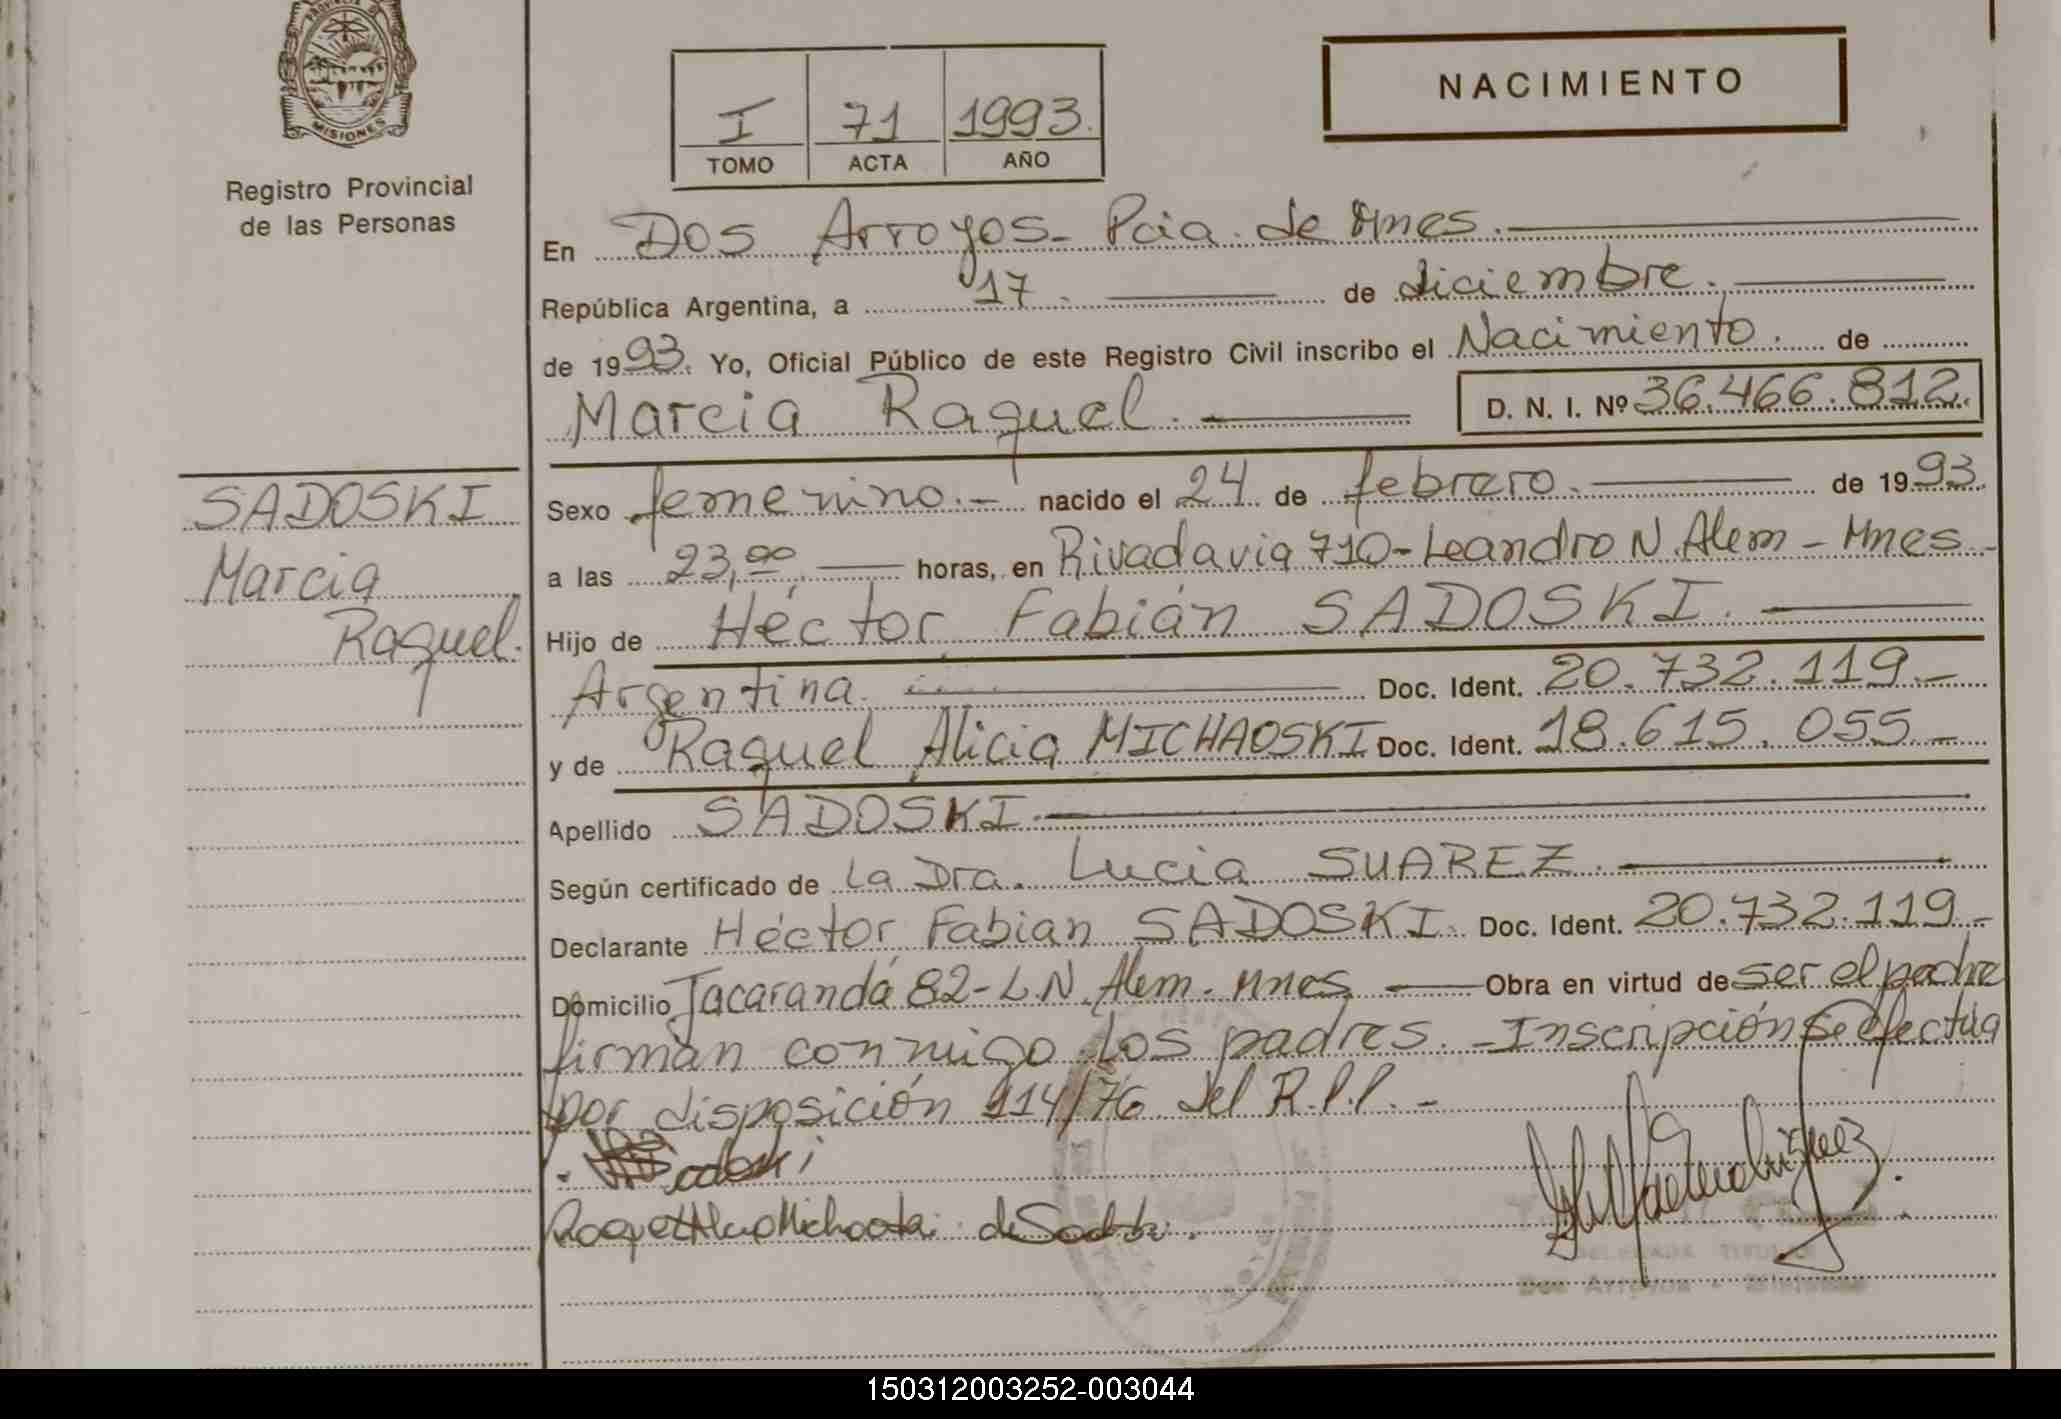 PROVINCIA DE
MISIONES
Registro Provincial
de las Personas
I 71 1993.
TOMO ACTA AÑO
NACIMIENTO
En Dos Arroyos - Pcia. de Mnes.
República Argentina, a 17. de diciembre.
de 1993. Yo, Oficial Público de este Registro Civil inscribo el Nacimiento. de
Marcia Raquel. D. N. I. Nº 36.466.812.
SADOSKI
Marcia
Raquel.
Sexo femenino.- nacido el 24 de febrero. de 1993
a las 23,00 horas, en Rivadavia 710-Leandro N. Alem - Mnes
Hijo de Héctor Fabián SADOSKI.
Argentina. Doc. Ident. 20.732.119.-
y de Raquel Alicia MICHAOSKI Doc. Ident. 18.615.055.-
Apellido SADOSKI.
Según certificado de La Dra. Lucia SUAREZ.
Declarante Héctor Fabian SADOSKI. Doc. Ident. 20.732.119.-
Domicilio Jacarandá 82-L.N. Alem. Mnes Obra en virtud de ser el padre
firman conmigo los padres. - Inscripción se efectúa
por disposición 114/76 del R.P.P. -
Sadoski
Raquel Alicia Michaoski de Sadoski.
DELEGADA TITULAR
Dos Arroyos - Misiones
150312003252-003044